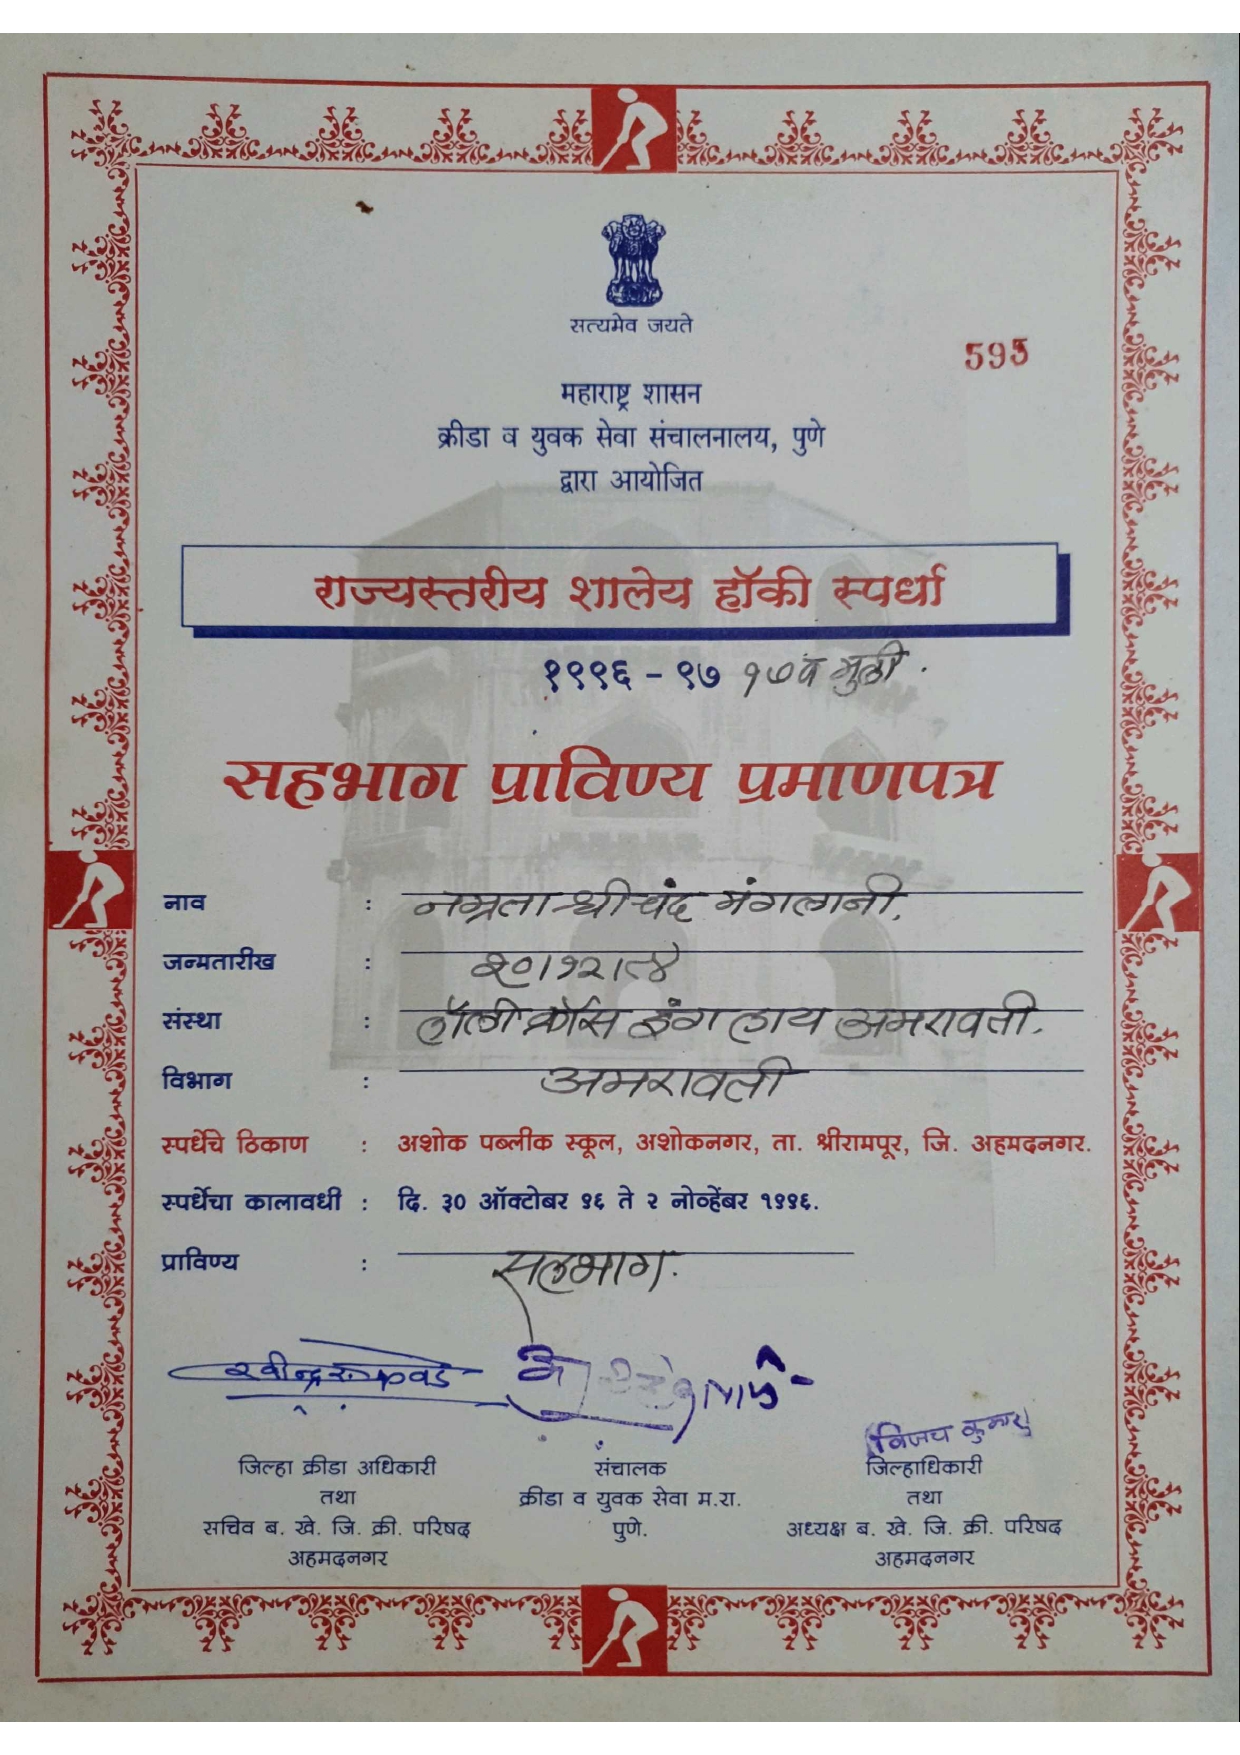 सत्यमेव जयते
595
महाराष्ट्र शासन
क्रीडा व युवक सेवा संचालनालय, पुणे
द्वारा आयोजित
राज्यस्तरीय शालेय हॉकी स्पर्धा
१९९६ - ९७ १७ व मुली.
सहभाग प्राविण्य प्रमाणपत्र
नाव : नम्रता श्रीचंद मंगलानी.
जन्मतारीख :
संस्था : होली क्रॉस इंग हाय अमरावती.
विभाग : अमरावती
स्पर्धेचे ठिकाण : अशोक पब्लीक स्कूल, अशोकनगर, ता. श्रीरामपूर, जि. अहमदनगर.
स्पर्धेचा कालावधी : दि. ३० ऑक्टोबर ९६ ते २ नोव्हेंबर १९९६.
प्राविण्य : सहभाग.
विजय कुमार
जिल्हा क्रीडा अधिकारी संचालक जिल्हाधिकारी
तथा क्रीडा व युवक सेवा म.रा. तथा
सचिव ब. खे. जि. क्री. परिषद पुणे. अध्यक्ष ब. खे. जि. क्री. परिषद
अहमदनगर अहमदनगर